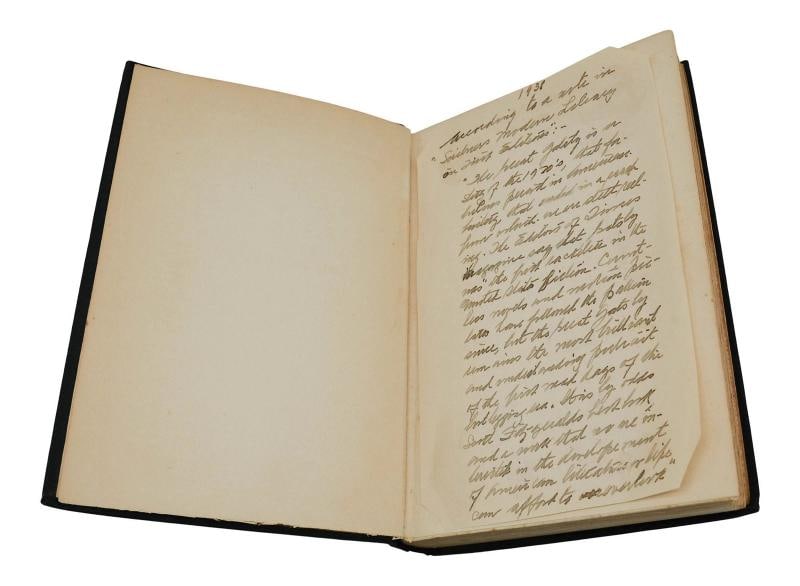 1938
According to a note in
"Scribners Modern Library
on First Editions":-
"The great Gatsby is a
story of the 1920's, that
period in American
history that ended in a crash
from which we are still reel-
ing. The Editors of Times
magazine say that Gatsby
was "the first racketeer in the
United States fiction. Count-
less novels and motion pic-
tures have followed the pattern
since, but the great Gatsby
remains the most brilliant
and understanding portrait
of the first mad days of the
bootlegging era. It is by odds
Scott Fitzgeralds best book
and a work that no one in-
terested in the developement
of American literature or life
can afford to overlook"